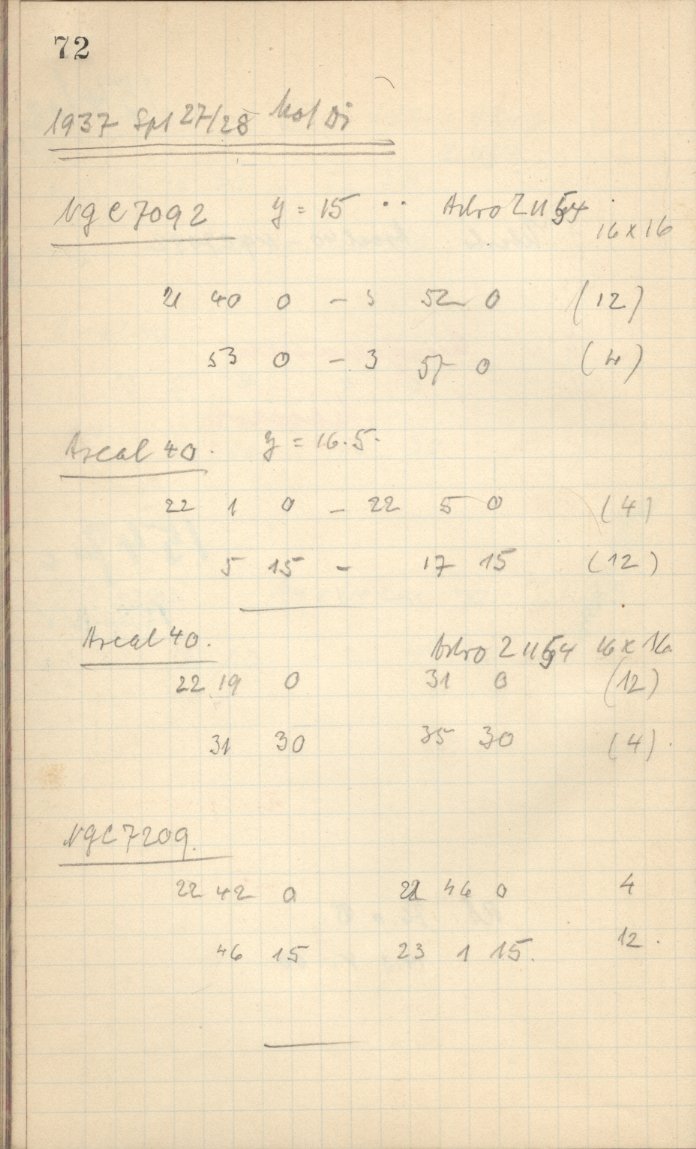 72
1937 Spt 27/28 Mo/Di
NgC 7092 y = 15 Astro Z 1154 16x16
21 40 0 - 3 52 0 (12)
53 0 - 3 57 0 (4)
Areal 40. y = 16.5.
22 1 0 - 22 5 0 (4)
5 15 - 17 15 (12)
Areal 40. Astro Z 1154 16x16
22 19 0 31 0 (12)
31 30 35 30 (4)
NgC 7209.
22 42 0 22 46 0 4
46 15 23 1 15. 12.